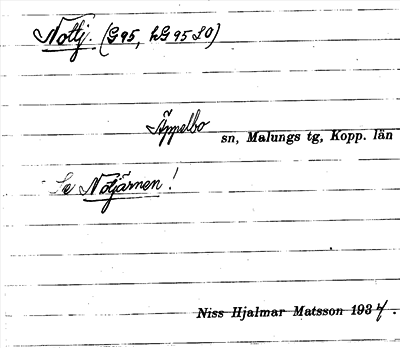 Nottj. (G95, hG95SO)
Äppelbo sn, Malungs tg, Kopp. län
Se Notjärnen!
Niss Hjalmar Matsson 1934.